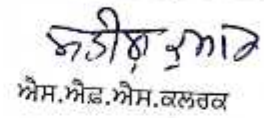 ਸਤੀਸ਼ ਕੁਮਾਰ
ਐਸ.ਐਫ਼.ਐਸ.ਕਲਰਕ